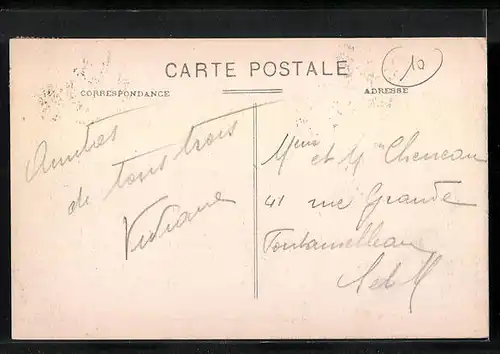 CARTE POSTALE
10
CORRESPONDANCE
ADRESSE
Amitiés
de tous trois
Viviane
Mme et M Cheneau
41 rue Grande
Fontainebleau
S et M